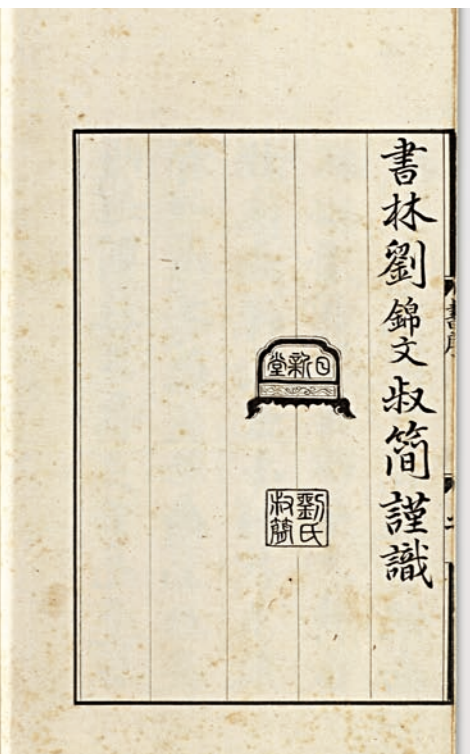 書林劉錦文叔簡謹識
日新堂
劉氏
叔簡
二